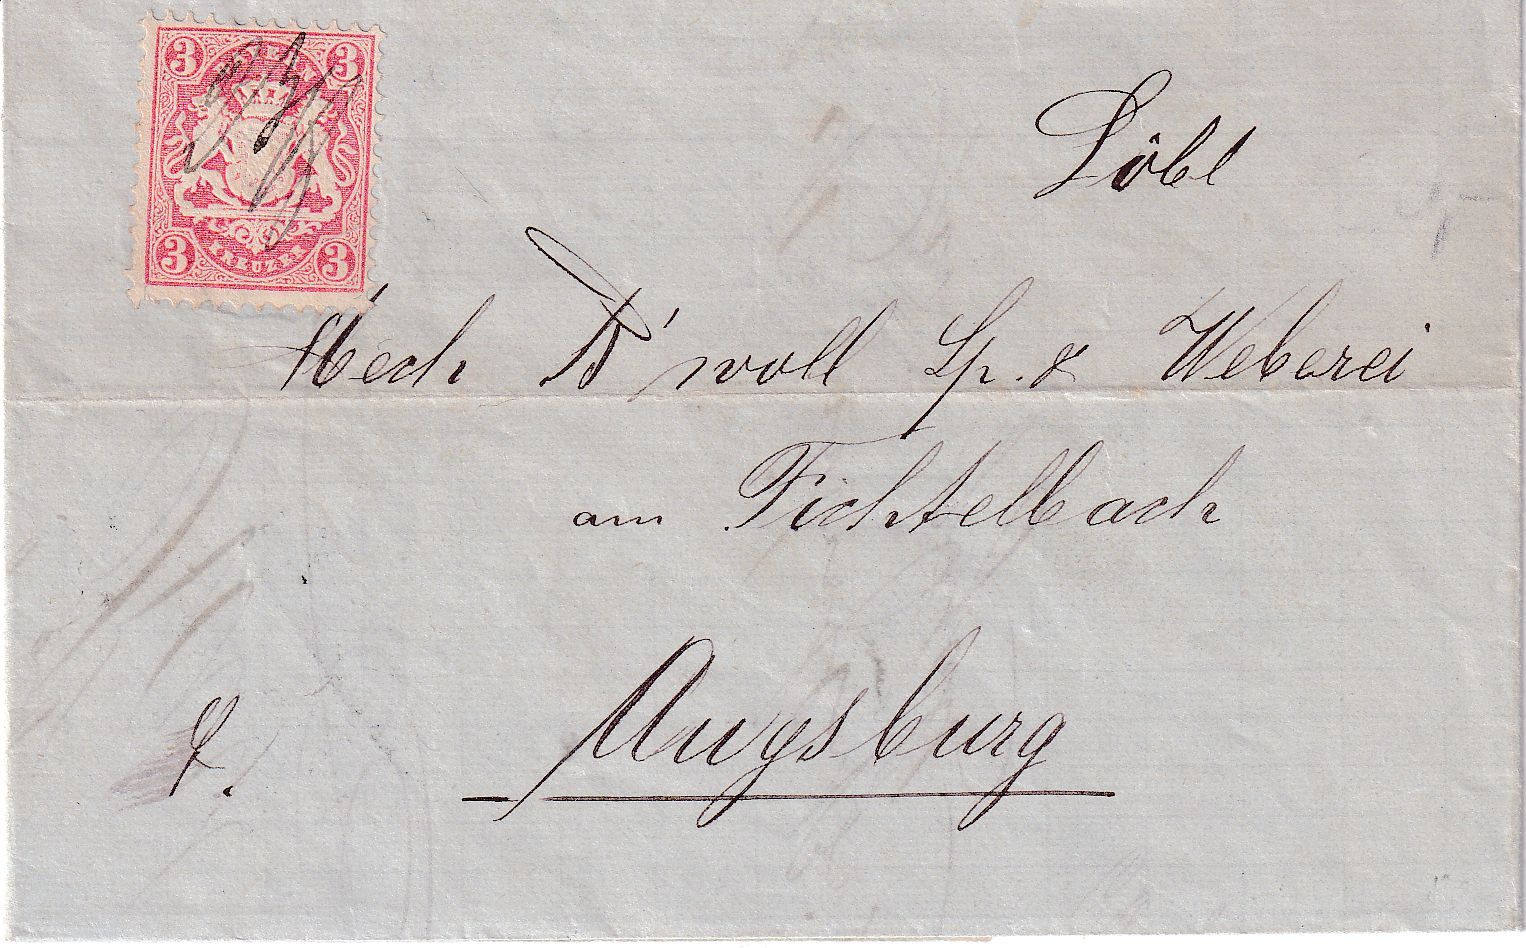 3 3
3 3
KREUZER
Löbl
Mech B'woll Sp. & Weberei
am Fichtelbach
Augsburg